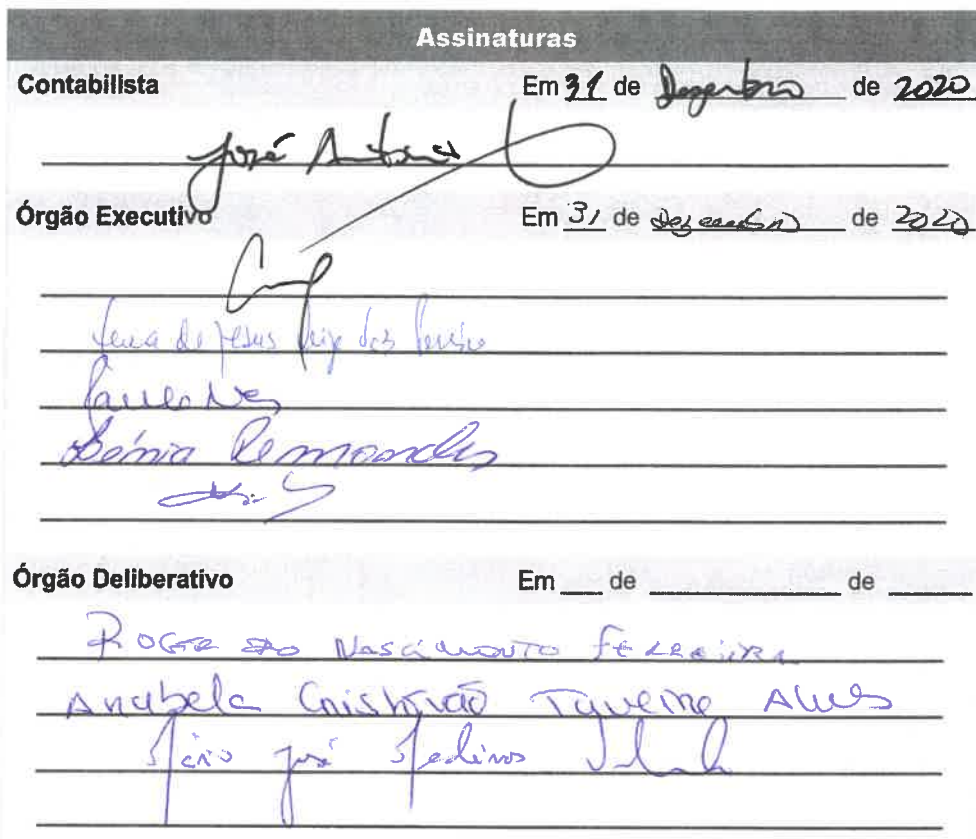 Assinaturas
Contabilista Em 31 de Dezembro de 2020
José António
Órgão Executivo Em 31 de Dezembro de 2020
de Jesus
Paulo
Sónia
Órgão Deliberativo Em __ de __ de __
Roger do Nascimento Ferreira
Anabela Cristóvão Taveira Alves
Mário José